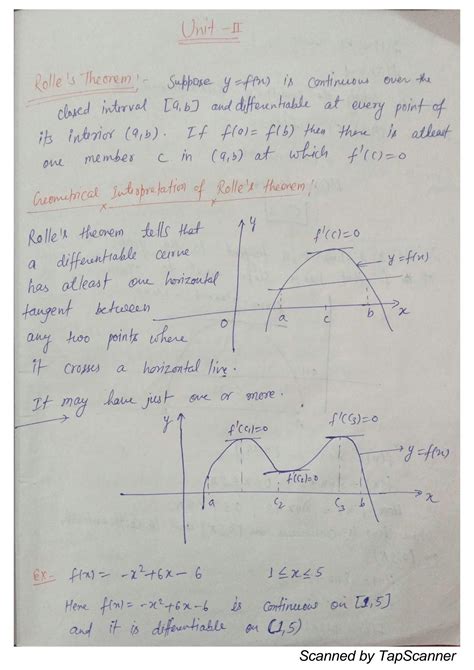 Unit - II
Rolle's Theorem :- Suppose y=f(x) is continuous over the
closed interval [a,b] and differentiable at every point of
its interior (a,b). If f(a)= f(b) then there is atleast
one member c in (a,b) at which f'(c)=0
Geometrical Intropretation of Rolle's theorem:
Rolle's theorem tells that
a differentiable curve
has atleast one horizontal
tangent between
any two points where
it crosses a horizontal line.
It may have just one or more.
y
f'(c)=0
y=f(x)
o
a
c
b
x
y
f'(c1)=0
f'(c3)=0
y=f(x)
f'(c2)=0
a
c2
c3
b
x
Ex:- f(x)= -x²+6x-6 1≤x≤5
Here f(x)= -x²+6x-6 is continuous on [1,5]
and it is differentiable on (1,5)
Scanned by TapScanner